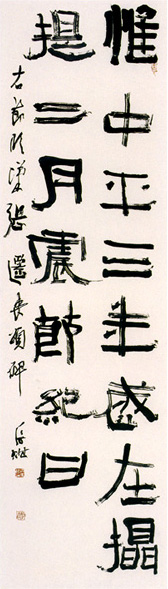 惟中平三年歲在攝
提二月震節紀日
右節臨漢張遷表頌碑